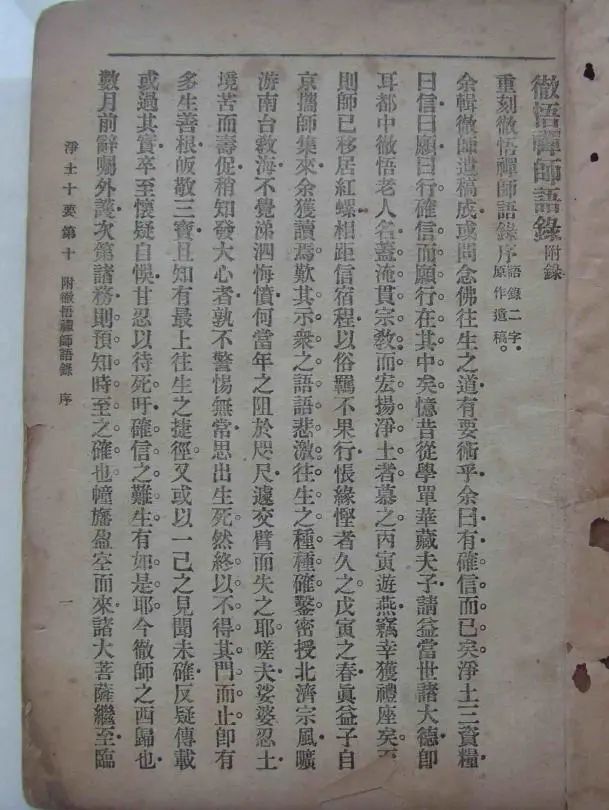 徹悟禪師語錄附錄
重刻徹悟禪師語錄序語錄二字。原作遺稿。
余輯徹師遺稿成或問念佛往生之道有要術乎余曰有確信而已矣淨土三資糧
曰信曰願曰行確信而願行在其中矣憶昔從學單華藏夫子請益當世諸大德即
耳都中徹悟老人名蓋淹貫宗教而宏揚淨土者慕之丙寅遊燕竊幸獲禮座矣至
則師已移居紅螺相距信宿程以俗羈不果行悵緣慳者久之戊寅之春眞益子自
京攜師集來余獲讀焉歎其示衆之語語悲激往生之種種確鑿密授北濟宗風曠
游南台教海不覺涕泗悔憤何當年之阻於咫尺遽交臂而失之耶嗟夫娑婆忍土
境苦而壽促稍知發大心者孰不警惕無常思出生死然終以不得其門而止卽有
多生善根皈敬三寶且知有最上往生之捷徑又或以一己之見聞未確反疑傳載
或過其實卒至懷疑自悞甘忍以待死吁確信之難生有如是耶今徹師之西歸也
數月前辭囑外護次第諸務則預知時至之確也幢旛盈空而來諸大菩薩繼至臨
淨土十要第十 附徹悟禪師語錄 序 一